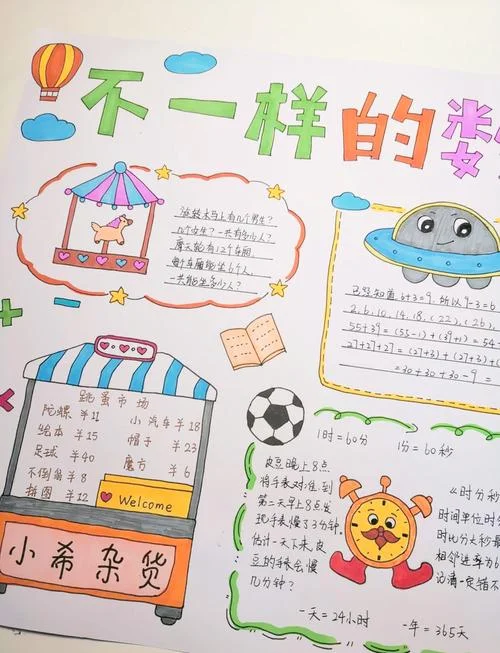 不一样的数
旋转木马上有几个男生?
几个女生?一共有多少人?
摩天轮有12个车厢,
每个车厢能坐6个人,
一共能坐多少人?
已知 6+3=9, 所以 9-3=6
2.6.10.14.18.(22).(26).
55+39=(55-1)+(39+1)=54
27+27+27=(27+3)+(27+3)+
=30+30+30-9=
跳蚤市场
陀螺 ¥11 小汽车 ¥18
绘本 ¥15 帽子 ¥23
足球 ¥40 魔方 ¥6
不倒翁 ¥8
拼图 ¥12
Welcome
小希杂货
1时=60分 1分=60秒
皮豆晚上8点
将手表对准,到
第二天早上8点发
现手表慢了3分钟.
估计一天下来,皮
豆的手表会慢
几分钟?
《时分秒
时间单位时分
时比分大秒最
相邻进率为6
记清一定错不
一天=24小时 一年=365天